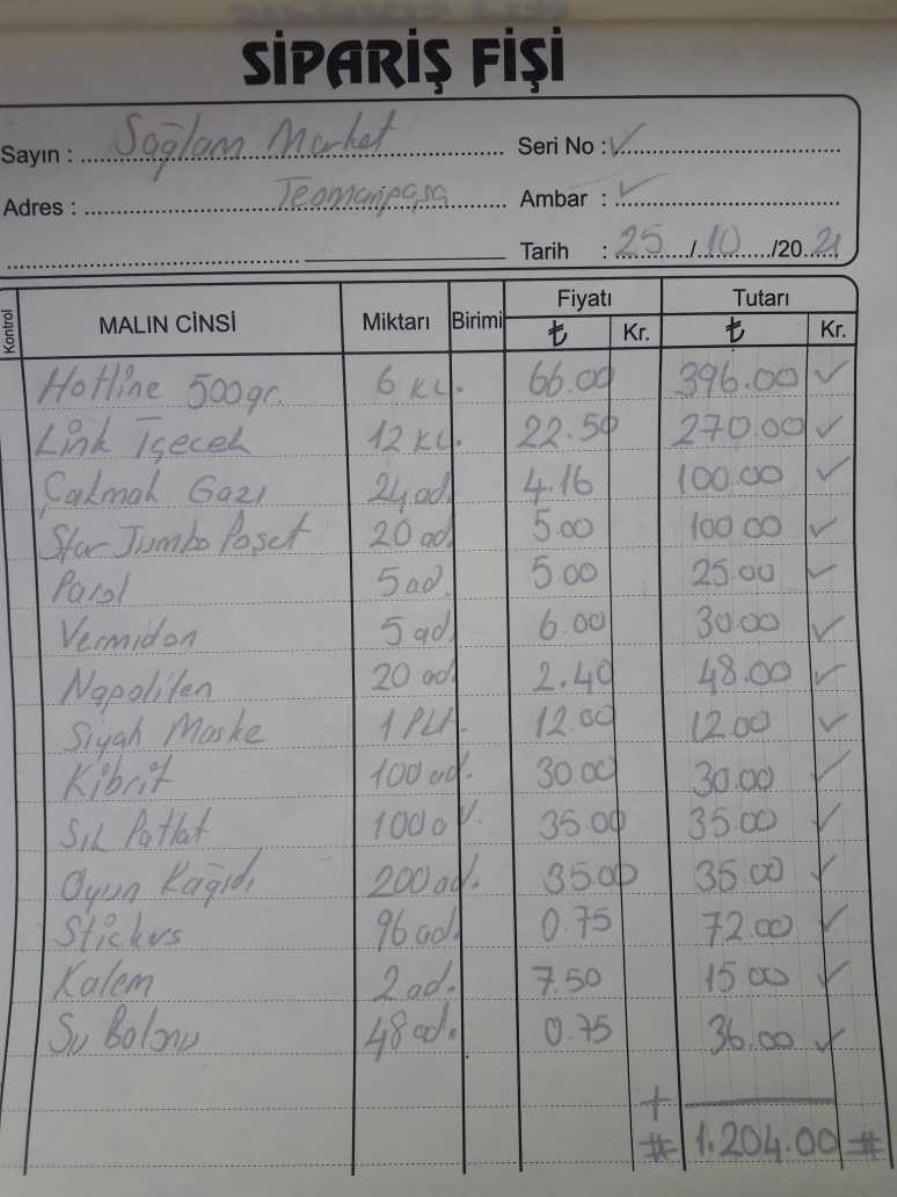 SİPARİŞ FİŞİ
Sayın : Sağlam Market Seri No : ✓
Adres : Teomanpaşa Ambar : ✓
Tarih : 25/10/2021
Kontrol MALIN CİNSİ Miktarı Birimi Fiyatı ₺ Kr. Tutarı ₺ Kr.
Hotline 500gr. 6 KL. 66.00 396.00 ✓
Link İçecek 12 KL. 22.50 270.00 ✓
Çakmak Gazı 24 ad. 4.16 100.00 ✓
Star Jumbo Poşet 20 ad. 5.00 100.00 ✓
Parol 5 ad. 5.00 25.00 ✓
Vermidon 5 ad. 6.00 30.00 ✓
Napoliten 20 ad. 2.40 48.00 ✓
Siyah Maske 1 Pkt. 12.00 12.00 ✓
Kibrit 100 ad. 30.00 30.00 ✓
Sık Patlat 100 ad. 35.00 35.00 ✓
Oyun Kağıdı 200 ad. 35.00 35.00 ✓
Stickers 96 ad. 0.75 72.00 ✓
Kalem 2 ad. 7.50 15.00 ✓
Su Balonu 48 ad. 0.75 36.00 ✓
+
# 1.204.00 #